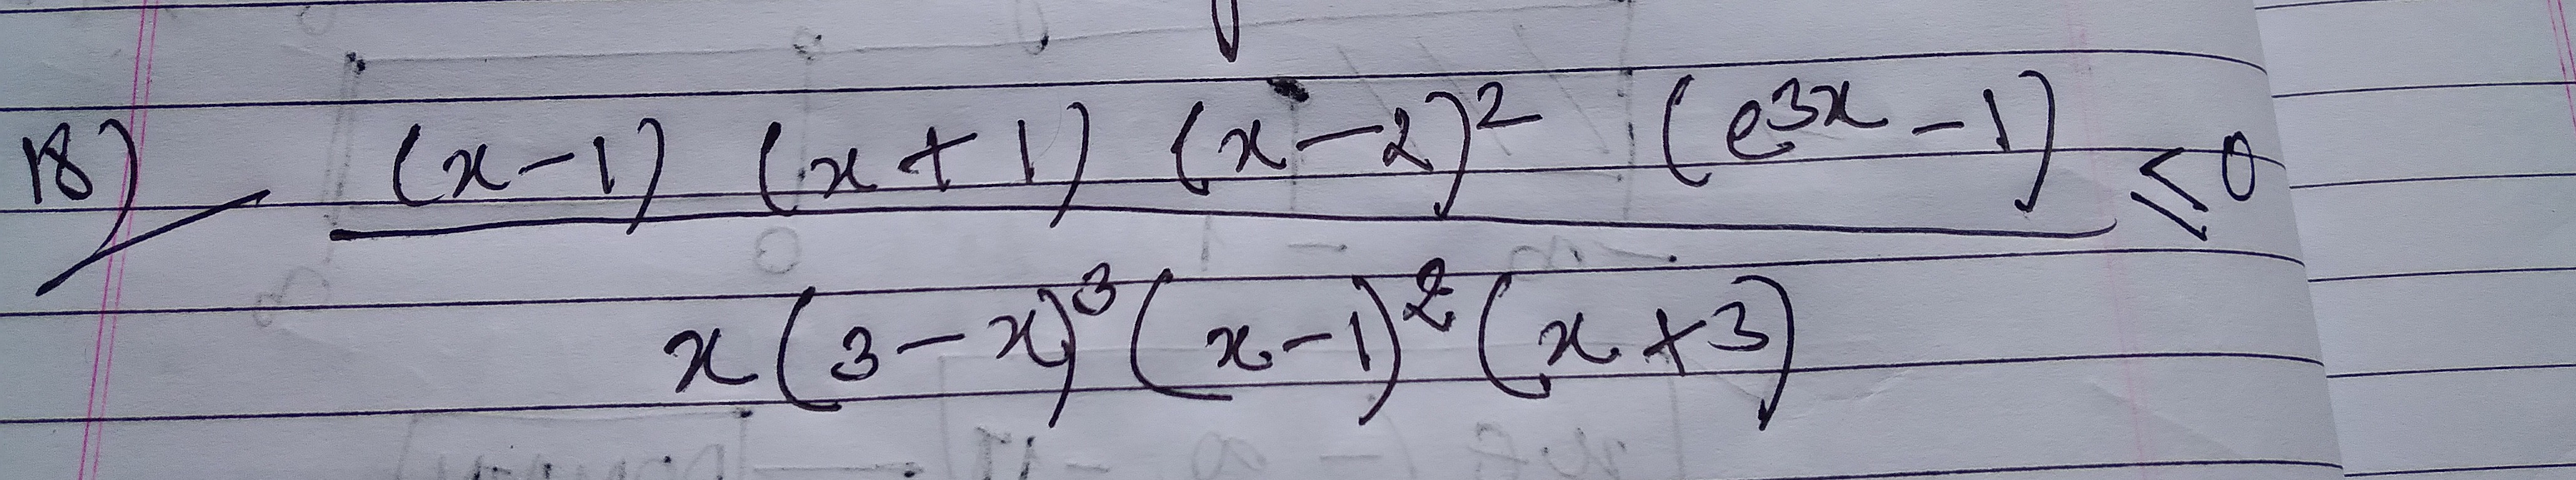 18) (x-1) (x+1) (x-2)² (e³ˣ-1) ≤ 0
x(3-x)³(x-1)²(x+3)